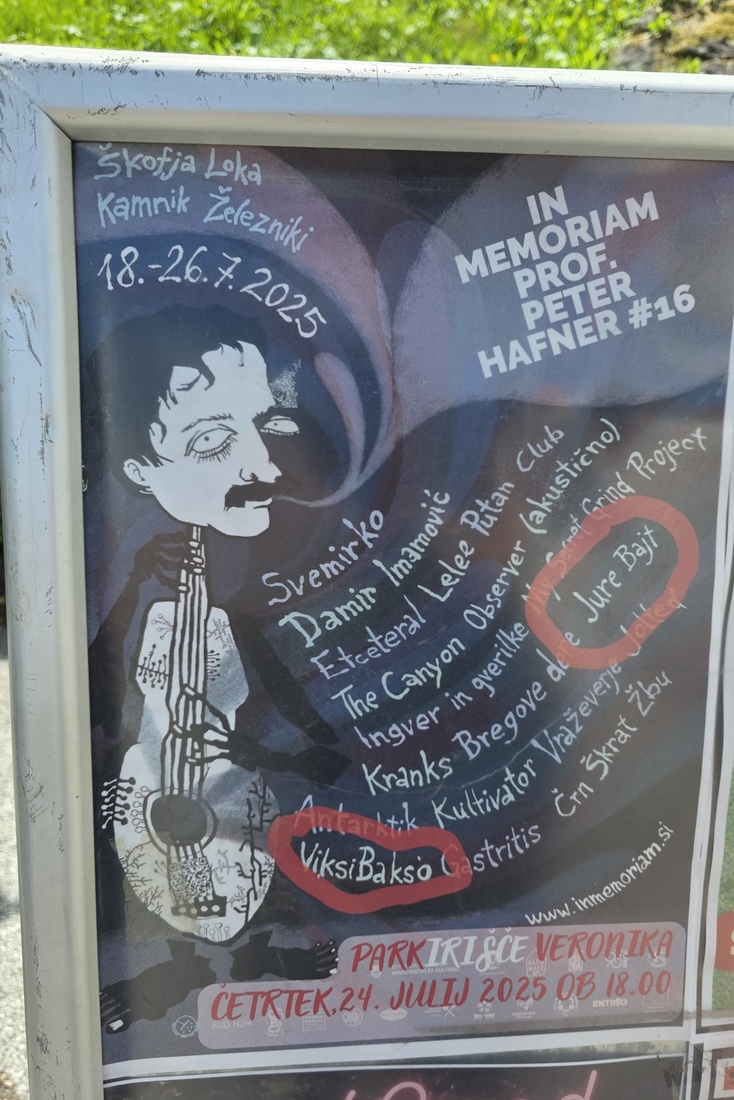 Škofja Loka
Kamnik Železniki
18.-26.7.2025
IN
MEMORIAM
PROF.
PETER
HAFNER #16
Svemirko
Damir Imamović
Etceteral Lelee Putan Club
The Canyon Observer (akustično)
Ingver in gverilke Grind Project
Kranks Bregove Jure Bajt
Antarktik Kultivator Vraževerje
ViksiBakso Gastritis Črn Škrat Žbu
www.inmemoriam.si
PARKIRIŠČE VERONIKA
ČETRTEK,24. JULIJ 2025 OB 18.00
KUD NUM
ENTRIO